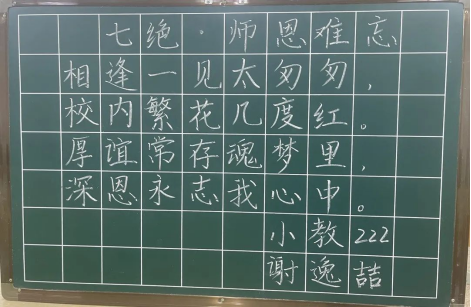 七绝·师恩难忘
相逢一见太匆匆，
校内繁花几度红。
厚谊常存魂梦里，
深恩永志我心中。
小教222
谢逸喆